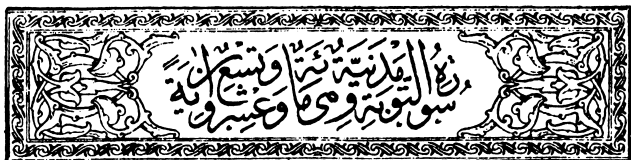 سورة التوبة مدنية وهي مائة وتسع وعشرون اية